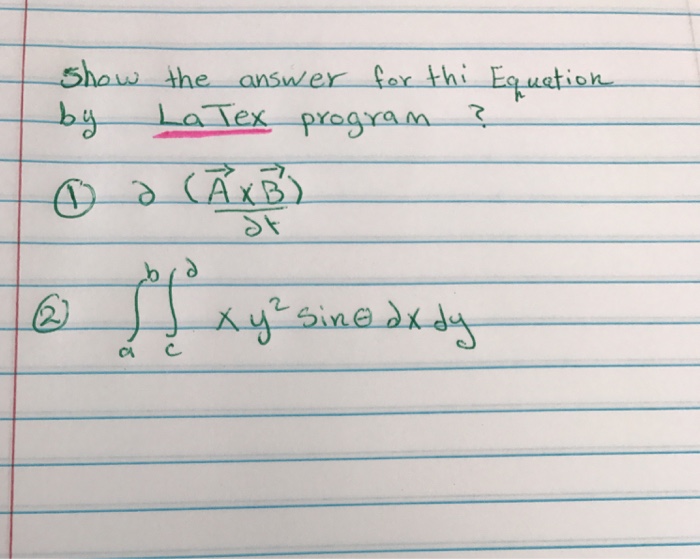 Show the answer for thi Equation
by LaTex program ?
① ∂ (A⃗ x B⃗)
∂t
② ∫_a^b ∫_c^∂ x y² sinθ ∂x dy